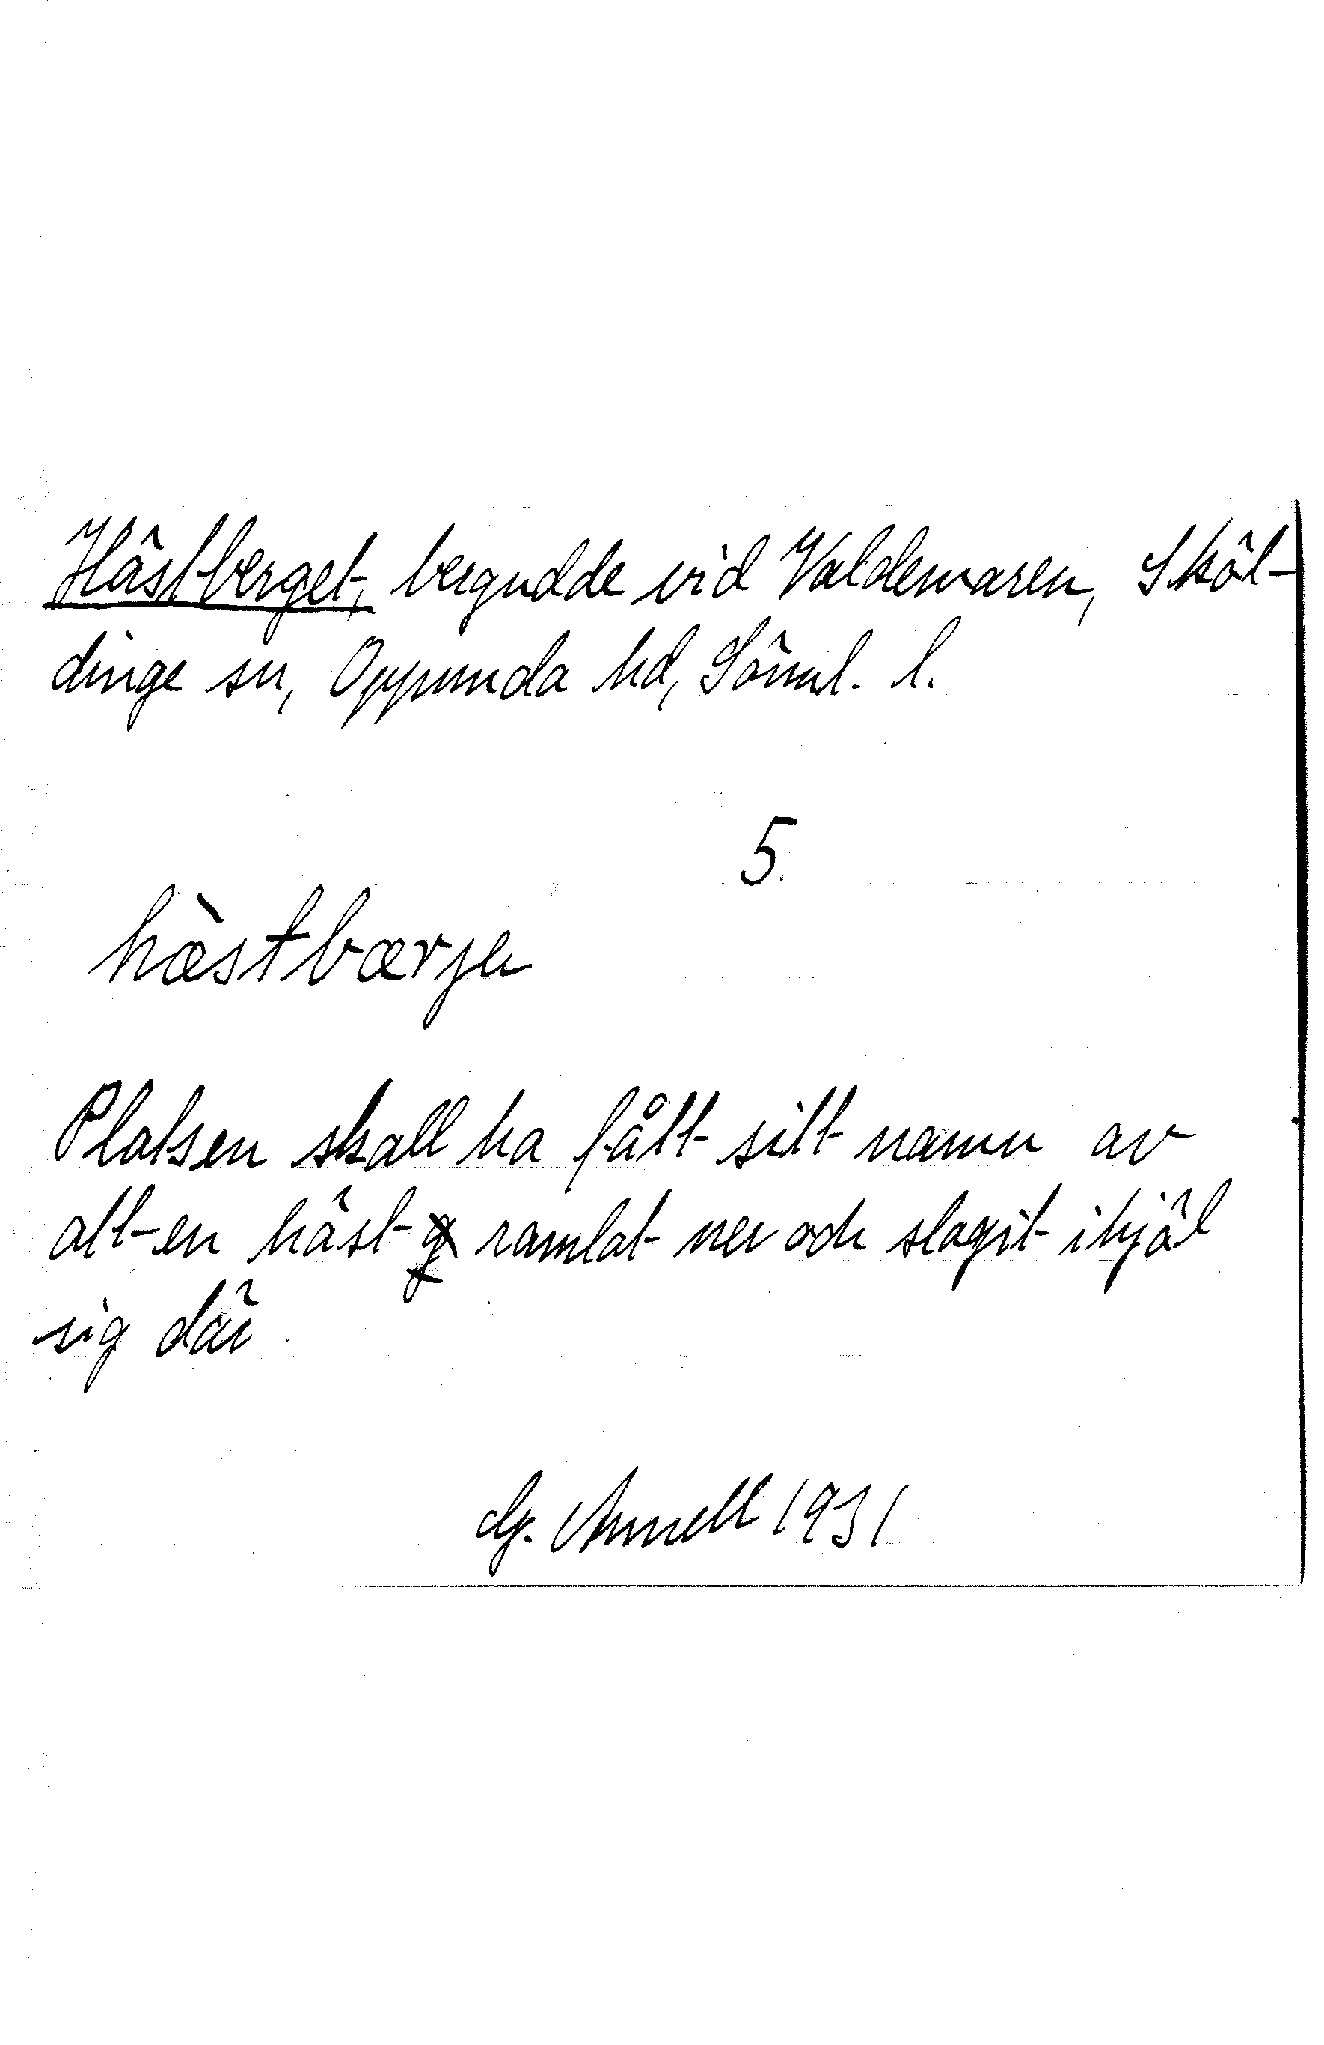 Hästberget, bergudde vid Valdemaren, Sköl-
dinge sn, Oppunda hd, Söml. l.
5.
hæ̀stbærje
Platsen skall ha fått sitt namn av
att en häst ramlat ner och slagit ihjäl
sig där.
G. Annell 1931